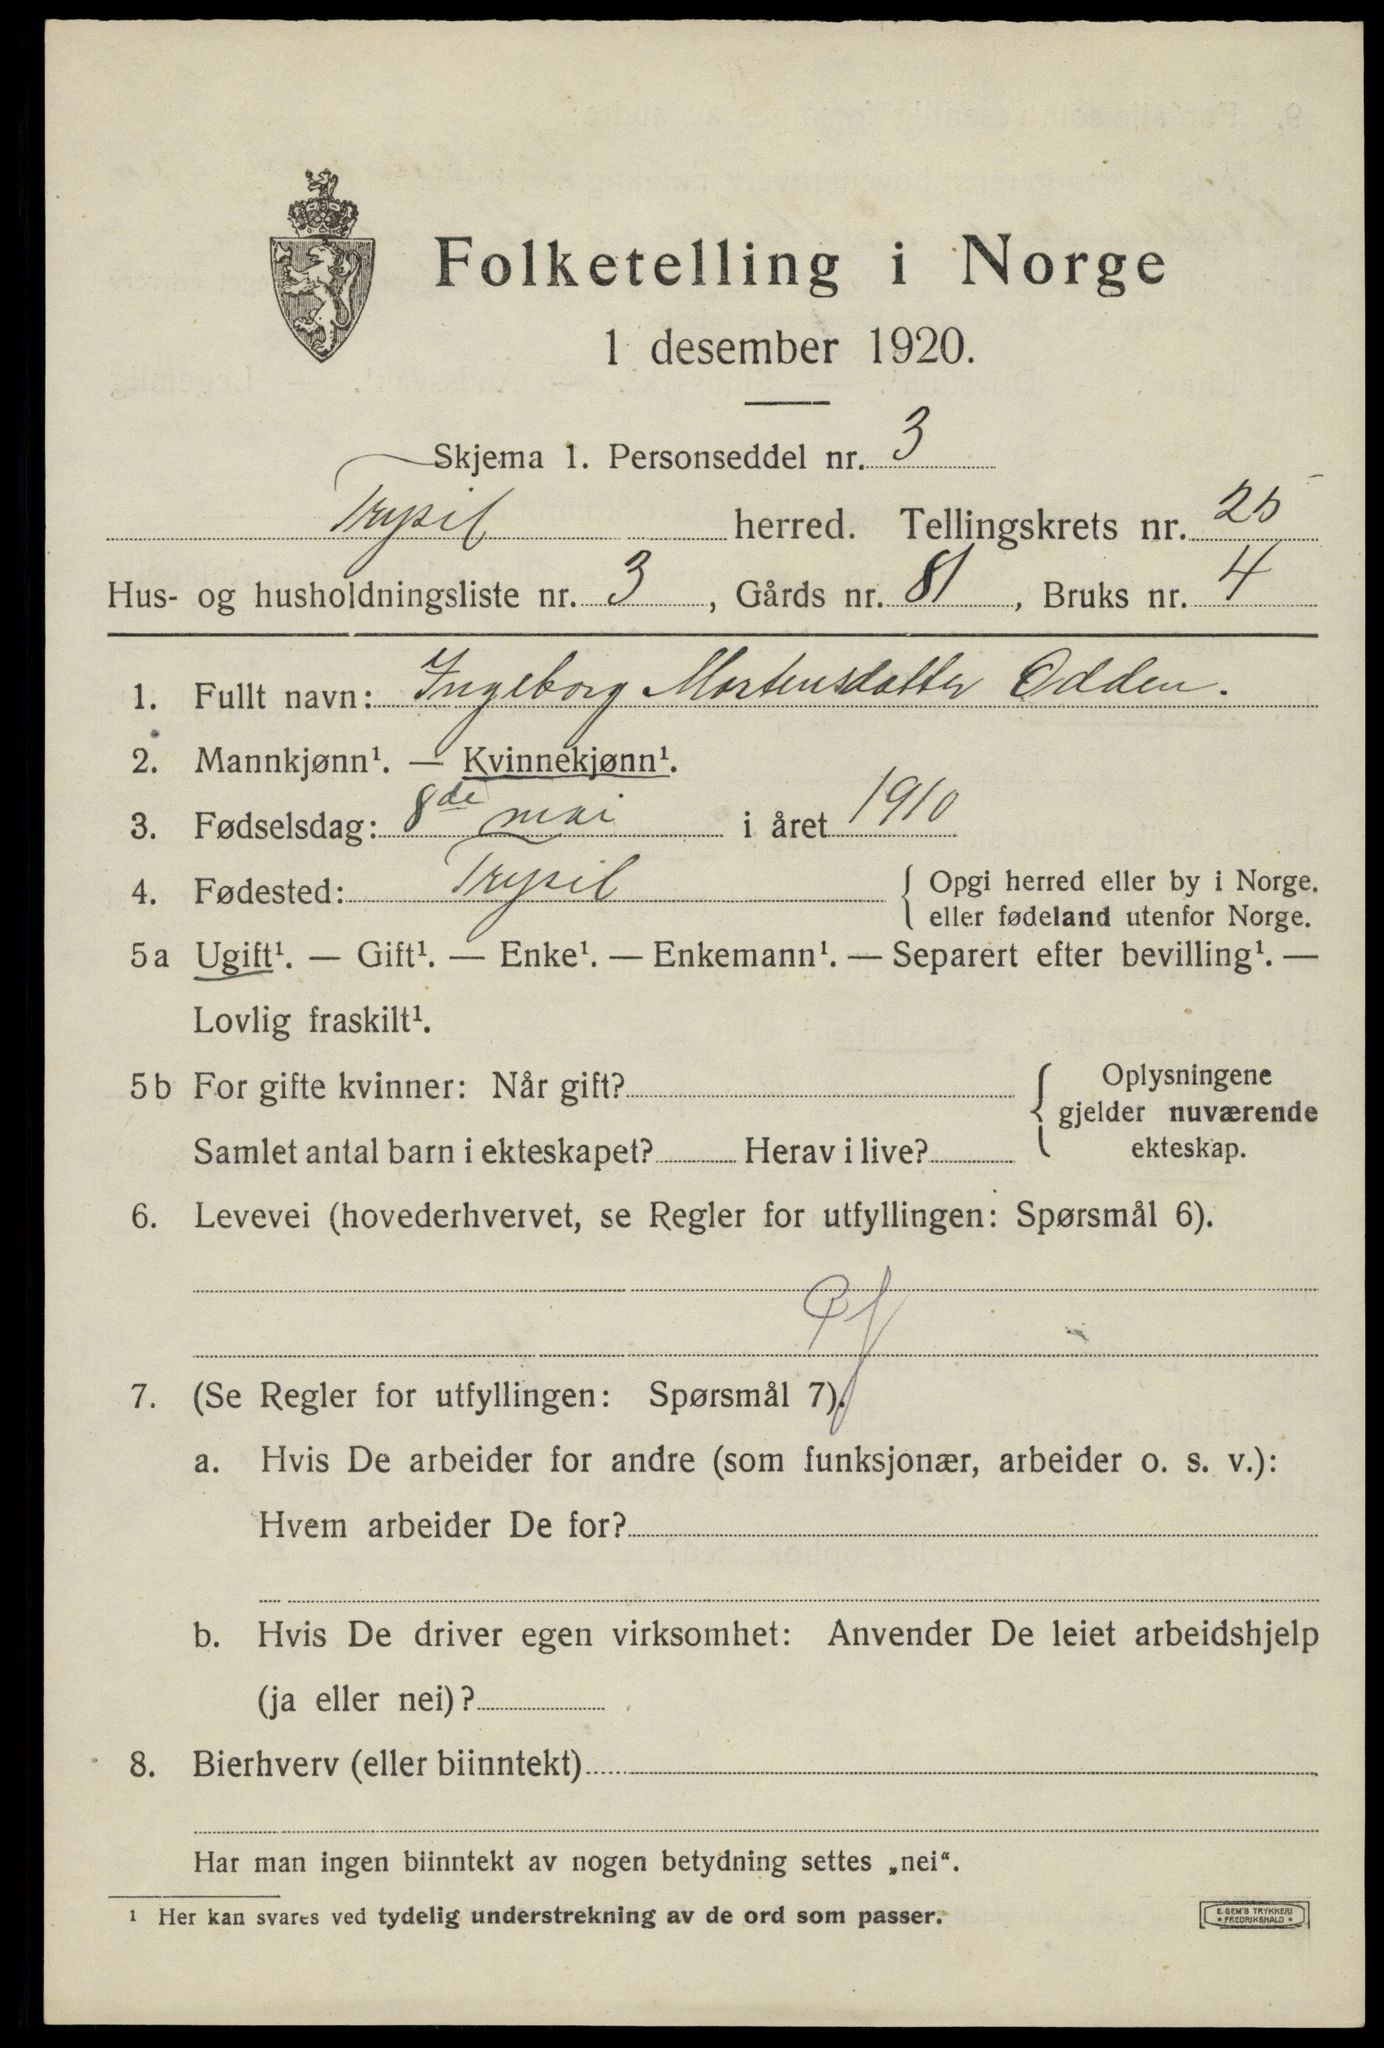 Folketelling i Norge
1 desember 1920.
Skjema 1. Personseddel nr. 3
Trysil herred. Tellingskrets nr. 25
Hus- og husholdningsliste nr. 3, Gårds nr. 81, Bruks nr. 4
1. Fullt navn: Ingeborg Mortensdatter Odden.
2. Mannkjønn¹. — Kvinnekjønn¹.
3. Fødselsdag: 8de mai i året 1910
4. Fødested: Trysil { Opgi herred eller by i Norge.
eller fødeland utenfor Norge.
5a Ugift¹. — Gift¹. — Enke¹. — Enkemann¹. — Separert efter bevilling¹. —
Lovlig fraskilt¹.
5b For gifte kvinner: Når gift?
Samlet antal barn i ekteskapet? Herav i live?
{ Oplysningene
gjelder nuværende
ekteskap.
6. Levevei (hovederhvervet, se Regler for utfyllingen: Spørsmål 6).
7. (Se Regler for utfyllingen: Spørsmål 7).
a. Hvis De arbeider for andre (som funksjonær, arbeider o. s. v.):
Hvem arbeider De for?
b. Hvis De driver egen virksomhet: Anvender De leiet arbeidshjelp
(ja eller nei)?
8. Bierhverv (eller biinntekt)
Har man ingen biinntekt av nogen betydning settes „nei“.
¹ Her kan svares ved tydelig understrekning av de ord som passer.
E. SEM'S TRYKKERI
• FREDRIKSHALD •